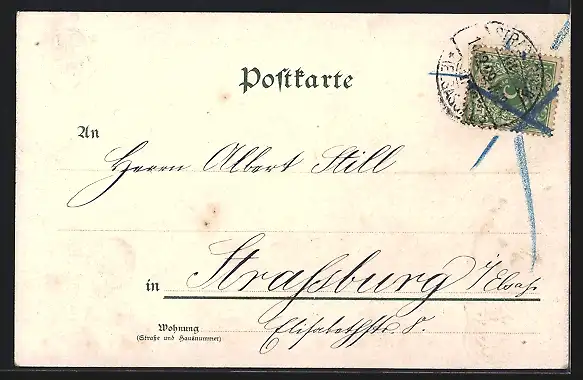 Postkarte
An
Herrn Albert Still
in Strassburg i/Elsaß
Elisabethstr. 8.
Wohnung
(Straße und Hausnummer)